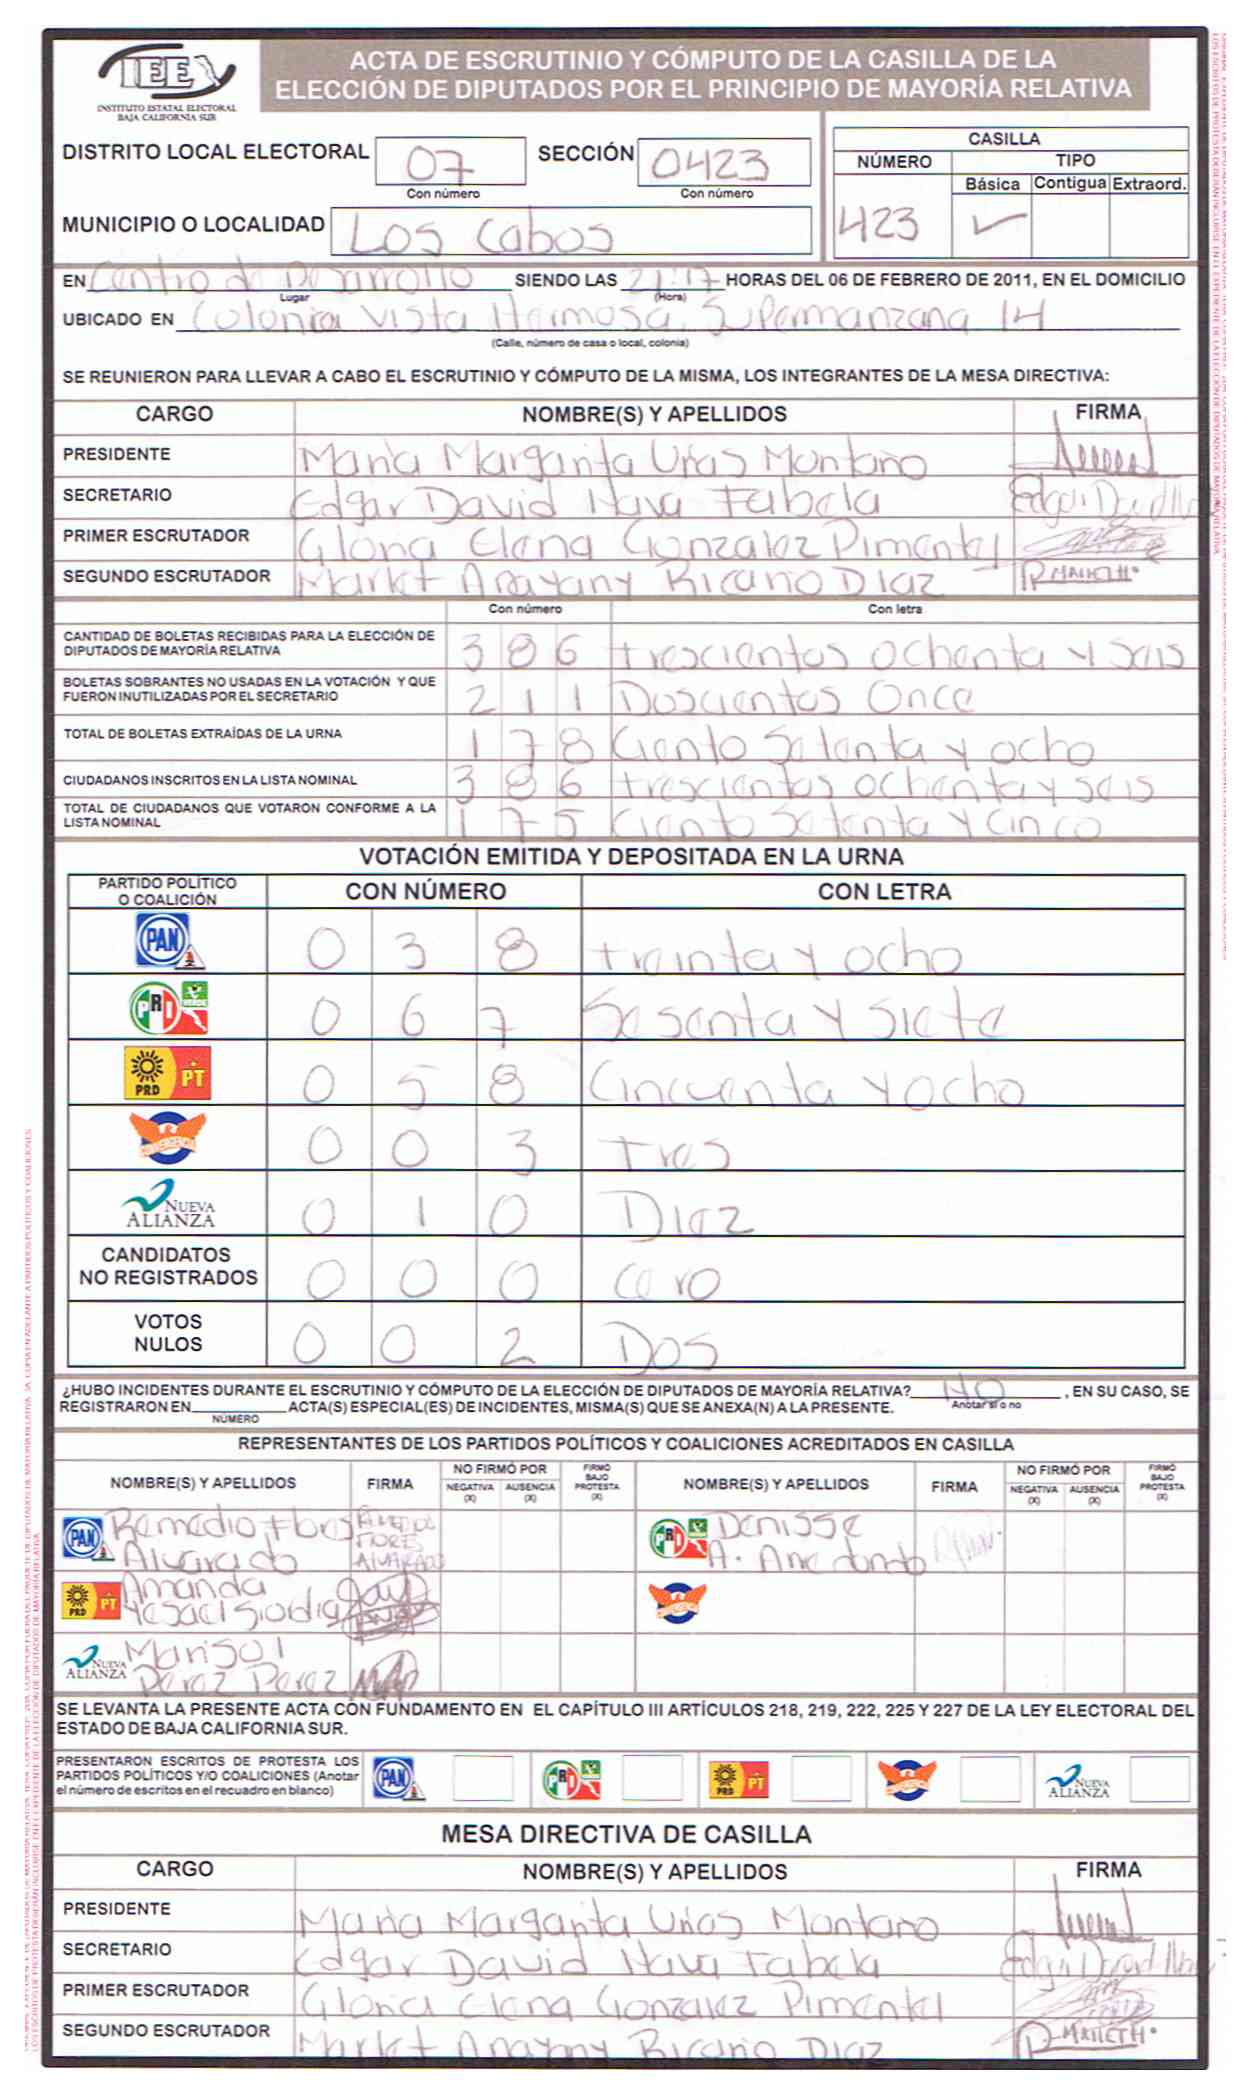 IEE
INSTITUTO ESTATAL ELECTORAL
BAJA CALIFORNIA SUR
ACTA DE ESCRUTINIO Y CÓMPUTO DE LA CASILLA DE LA
ELECCIÓN DE DIPUTADOS POR EL PRINCIPIO DE MAYORÍA RELATIVA
DISTRITO LOCAL ELECTORAL 07 SECCIÓN 0423
Con número Con número
CASILLA
NÚMERO TIPO
Básica Contigua Extraord.
423 ✓
MUNICIPIO O LOCALIDAD Los Cabos
EN Centro de Desarrollo SIENDO LAS 21:17 HORAS DEL 06 DE FEBRERO DE 2011, EN EL DOMICILIO
Lugar (Hora)
UBICADO EN Colonia Vista Hermosa, Supermanzana 14
(Calle, número de casa o local, colonia)
SE REUNIERON PARA LLEVAR A CABO EL ESCRUTINIO Y CÓMPUTO DE LA MISMA, LOS INTEGRANTES DE LA MESA DIRECTIVA:
CARGO NOMBRE(S) Y APELLIDOS FIRMA
PRESIDENTE Maria Margarita Uñas Montaño
SECRETARIO Edgar David Nava Fabela
PRIMER ESCRUTADOR Gloria Elena Gonzalez Pimentel
SEGUNDO ESCRUTADOR Markt Anayany Ricaño Diaz
Con número Con letra
CANTIDAD DE BOLETAS RECIBIDAS PARA LA ELECCIÓN DE
DIPUTADOS DE MAYORÍA RELATIVA 3 8 6 trescientos ochenta y seis
BOLETAS SOBRANTES NO USADAS EN LA VOTACIÓN Y QUE
FUERON INUTILIZADAS POR EL SECRETARIO 2 1 1 Doscientos Once
TOTAL DE BOLETAS EXTRAÍDAS DE LA URNA 1 7 8 Ciento Setenta y ocho
CIUDADANOS INSCRITOS EN LA LISTA NOMINAL 3 8 6 trescientos ochenta y seis
TOTAL DE CIUDADANOS QUE VOTARON CONFORME A LA
LISTA NOMINAL 1 7 5 Ciento Setenta y cinco
VOTACIÓN EMITIDA Y DEPOSITADA EN LA URNA
PARTIDO POLÍTICO
O COALICIÓN CON NÚMERO CON LETRA
PAN 0 3 8 treinta y ocho
PRI VERDE 0 6 7 Sesenta y siete
PRD PT 0 5 8 Cincuenta y ocho
CONVERGENCIA 0 0 3 tres
NUEVA ALIANZA 0 1 0 Diez
CANDIDATOS
NO REGISTRADOS 0 0 0 cero
VOTOS
NULOS 0 0 2 Dos
¿HUBO INCIDENTES DURANTE EL ESCRUTINIO Y CÓMPUTO DE LA ELECCIÓN DE DIPUTADOS DE MAYORÍA RELATIVA? NO , EN SU CASO, SE
Anotar sí o no
REGISTRARON EN ACTA(S) ESPECIAL(ES) DE INCIDENTES, MISMA(S) QUE SE ANEXA(N) A LA PRESENTE.
NÚMERO
REPRESENTANTES DE LOS PARTIDOS POLÍTICOS Y COALICIONES ACREDITADOS EN CASILLA
NOMBRE(S) Y APELLIDOS FIRMA NO FIRMÓ POR NEGATIVA (X) AUSENCIA (X) FIRMÓ BAJO PROTESTA (X) NOMBRE(S) Y APELLIDOS FIRMA NO FIRMÓ POR NEGATIVA (X) AUSENCIA (X) FIRMÓ BAJO PROTESTA (X)
PAN Remedio Flores
Alvarado REMEDIOS FLORES ALVARADO
PRI VERDE Denisse
A.
PRD PT Amanda
CONVERGENCIA
NUEVA ALIANZA Marisol
Perez Perez
SE LEVANTA LA PRESENTE ACTA CON FUNDAMENTO EN EL CAPÍTULO III ARTÍCULOS 218, 219, 222, 225 Y 227 DE LA LEY ELECTORAL DEL
ESTADO DE BAJA CALIFORNIA SUR.
PRESENTARON ESCRITOS DE PROTESTA LOS
PARTIDOS POLÍTICOS Y/O COALICIONES (Anotar
el número de escritos en el recuadro en blanco)
PAN PRI VERDE PRD PT CONVERGENCIA NUEVA ALIANZA
MESA DIRECTIVA DE CASILLA
CARGO NOMBRE(S) Y APELLIDOS FIRMA
PRESIDENTE Maria Margarita Uñas Montaño
SECRETARIO Edgar David Nava Fabela
PRIMER ESCRUTADOR Gloria Elena Gonzalez Pimentel
SEGUNDO ESCRUTADOR Markt Anayany Ricaño Diaz